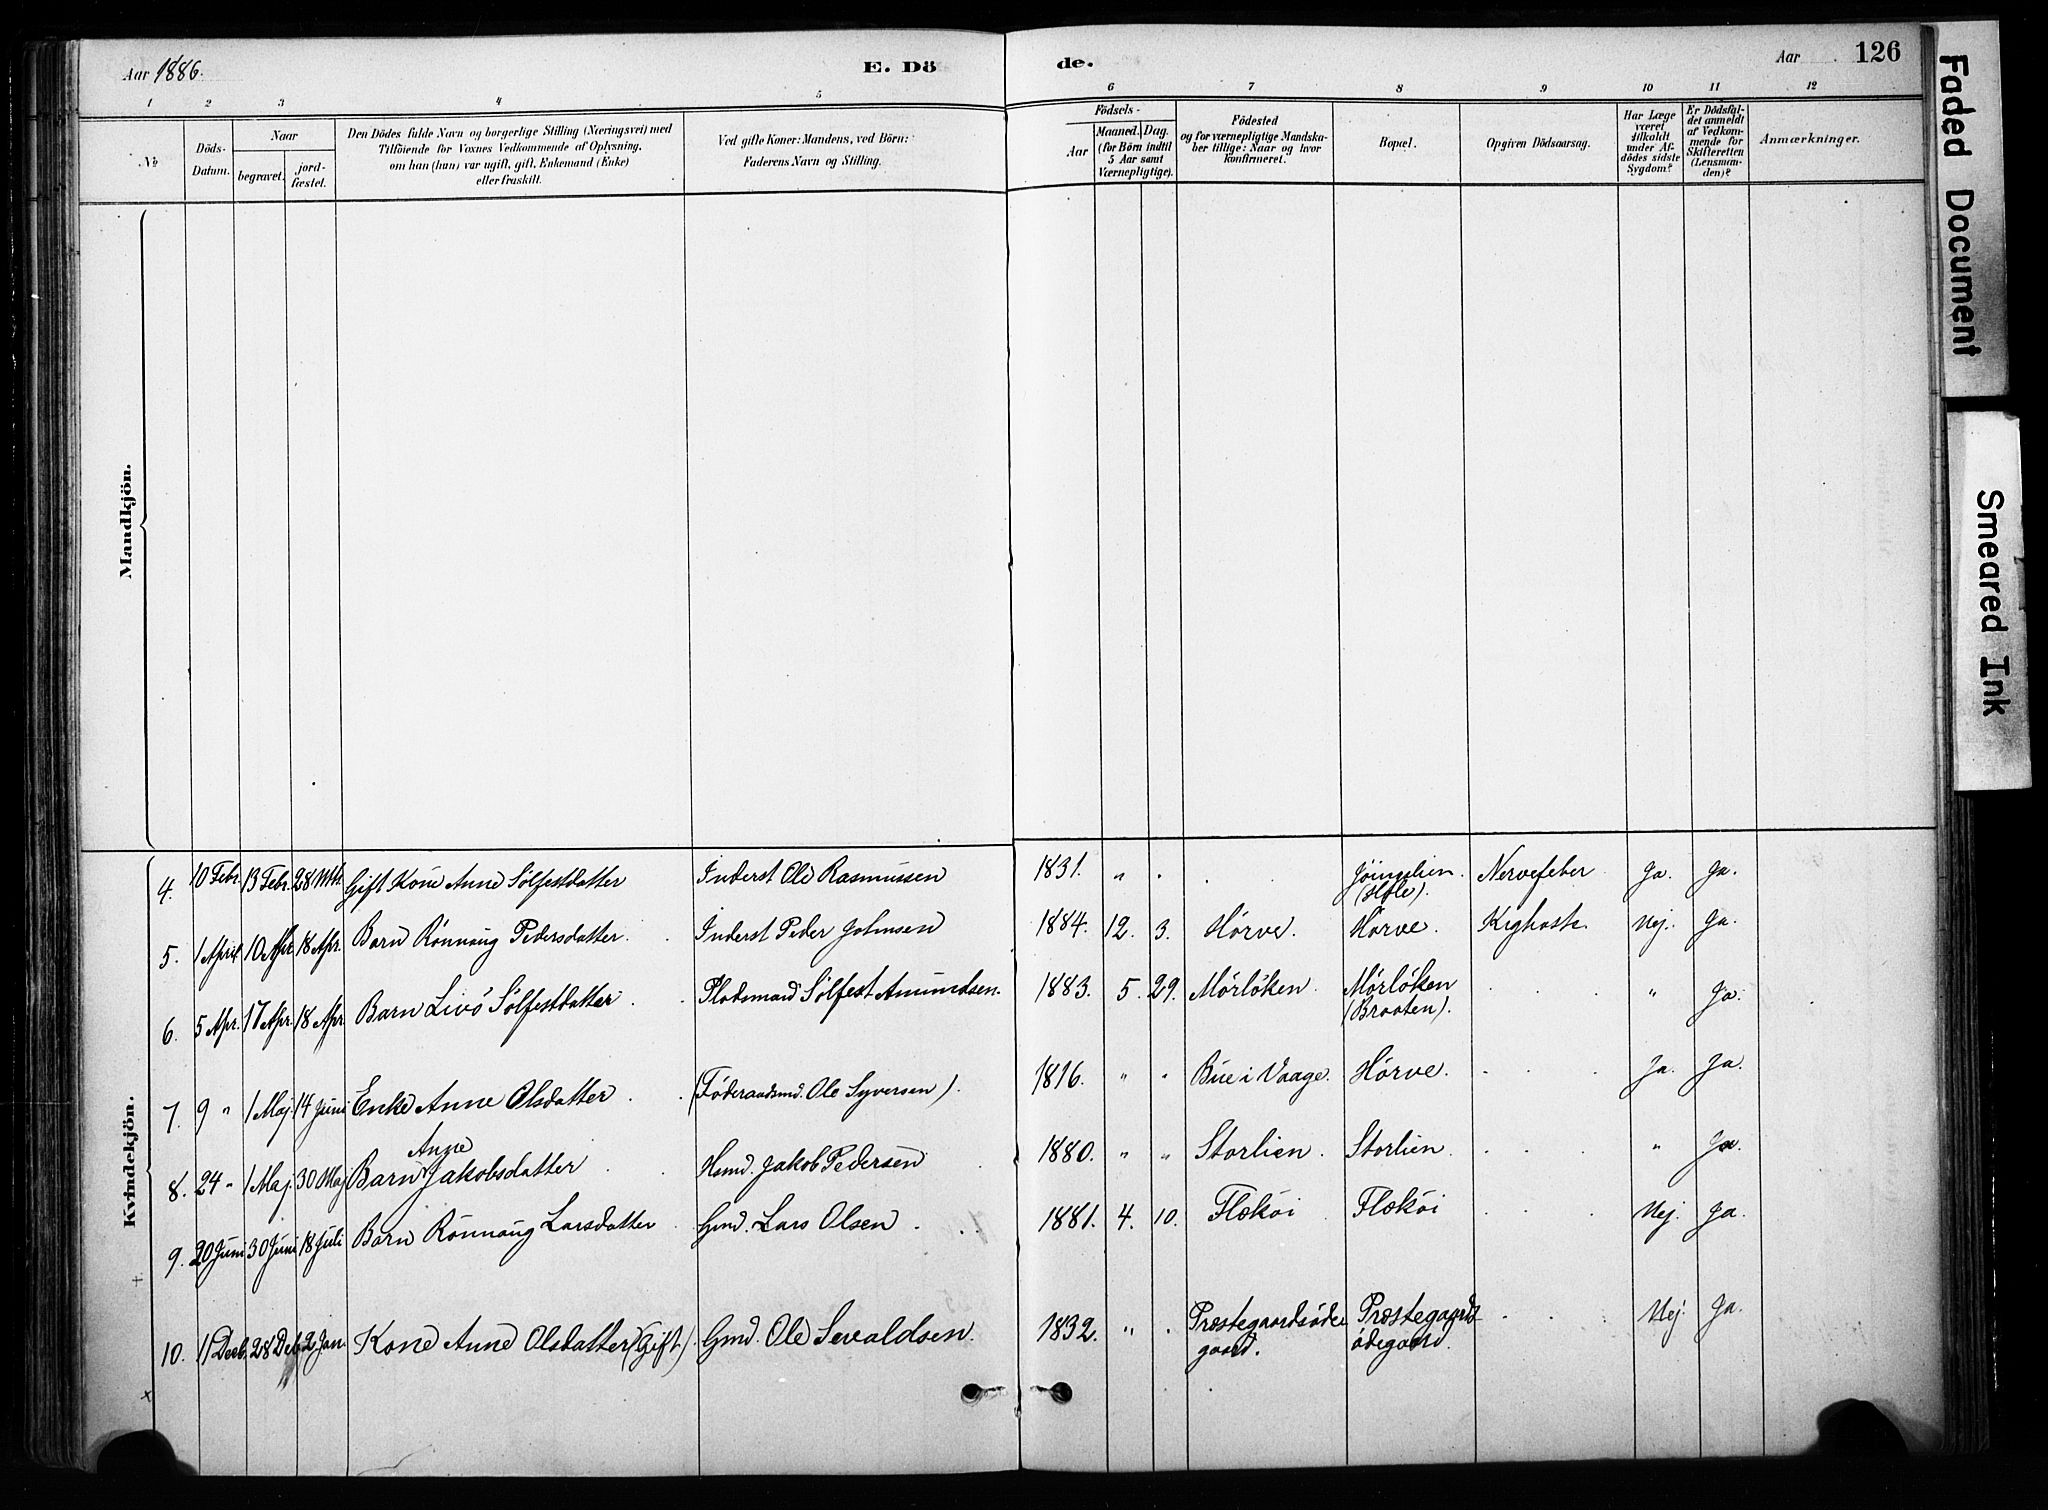 Aar 1886. E. Dö de. Aar 126
1 2 3 4 5 6 7 8 9 10 11 12
No
Döds-
Datum.
Naar
begravet.
jord-
fæstet.
Den Dödes fulde Navn og borgerlige Stilling (Næringsvei) med
Tilföiende for Voxnes Vedkommende af Oplysning,
om han (hun) var ugift, gift, Enkemand (Enke)
eller fraskilt.
Ved gifte Koner: Mandens, ved Börn:
Faderens Navn og Stilling.
Födsels-
Aar
Maaned. Dag.
(for Börn indtil
5 Aar samt
Værnepligtige).
Födested
og for værnepligtige Mandska-
ber tillige: Naar og hvor
konfirmeret.
Bopæl.
Opgiven Dödsaarsag.
Har Læge
været
tilkaldt
under Af-
dödes sidste
Sygdom?
Er Dödsfal-
det anmeldt
af Vedkom-
mende for
Skifteretten
(Lensman-
den)?
Anmærkninger.
Mandkjön.
Kvindekjön.
4. 10 Febr. 13 Febr. 28 Mts. Gift Kone Anne Sølfestdatter Inderst Ole Rasmussen 1831. " . . Nervefeber Ja. Ja.
5. 1 April 10 Apr. 18 Apr. Barn Rønnaug Pedersdatter. Inderst Peder Johnsen 1884. 12. 3. Hørve. Hørve. Kighoste Nej. Ja.
6. 5 Apr. 17 Apr. 18 Apr. Barn Sølfestdatter. Pladsmand Sølfest Amundsen. 1883. 5. 29. Mørløken. Mørløken
(Braaten). " Ja.
7. 9 " 1 Maj. 14 Juni Enke Anne Olsdatter. (Føderaadsmd. Ole Syversen). 1816. " " Bue i Vaage. Hørve. Ja. Ja.
8. 24 " 1 Maj. 30 Maj Barn Anne Jakobsdatter Hsmd. Jakob Pedersen 1880. " " Storlien. Storlien. " Ja.
9. 20 Juni 30 Juni 18 Juli Barn Rønnaug Larsdatter Gmd. Lars Olsen. 1881. 4. 10. Flækøi Flækøi Nej. Ja.
10. 11 Decb. 28 Deb. 2 Jan. Kone Anne Olsdatter (Gift.) Gmd. Ole Sevaldsen. 1832. " . Præstegaardsøde
gaard. Præstegaards
ødegaard. Nej. Ja.
Faded Document
Smeared Ink